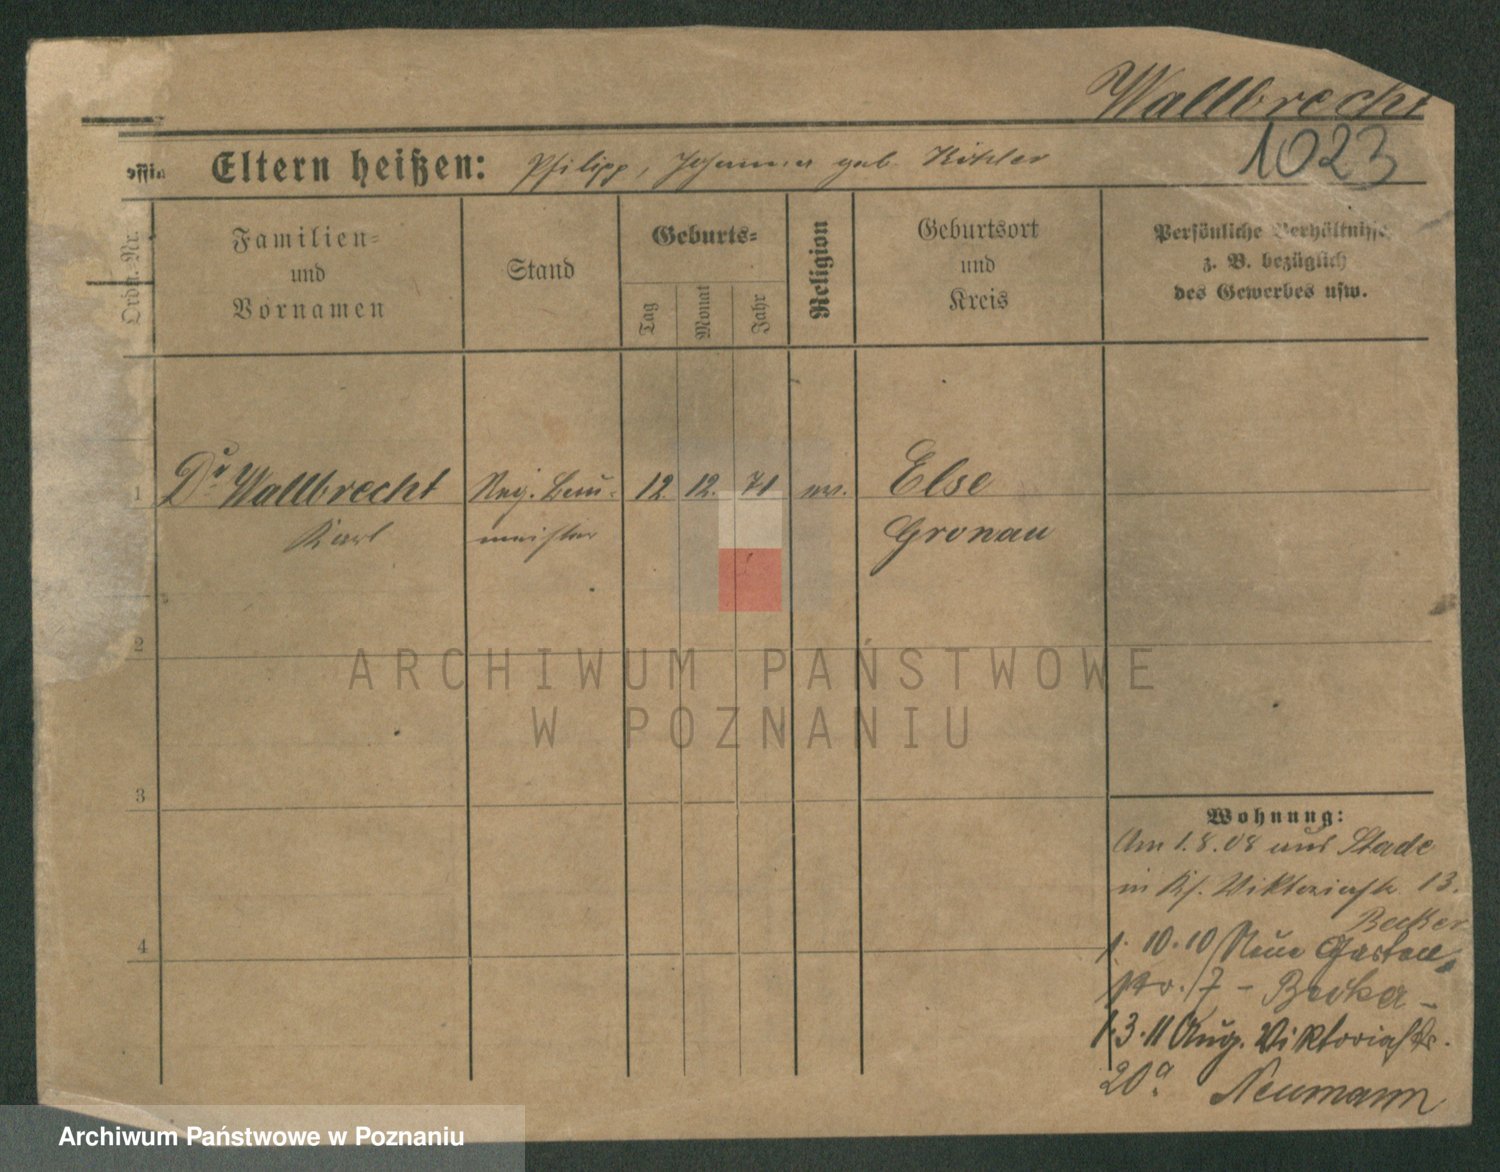 Wallbrecht
1023
Eltern heißen: Philipp, Johanna geb. Köhler
Ordn. Nr.
Familien-
und
Vornamen
Stand
Geburts-
Tag
Monat
Jahr
Religion
Geburtsort
und
Kreis
Persönliche Verhältnisse,
z. B. bezüglich
des Gewerbes usw.
1 Dr Wallbrecht Reg. Bau- 12. 12. 71 ev. Else
Karl meister Gronau
2
3
4
Wohnung:
Am 1.8.08 aus Stade
in Viktoriastr. 13.
Becker
1.10.10 Neue Garten
str. 17 - Becker -
1.3.11 Aug. Viktoriastr.
20a. Neumann
ARCHIWUM PAŃSTWOWE
W POZNANIU
Archiwum Państwowe w Poznaniu